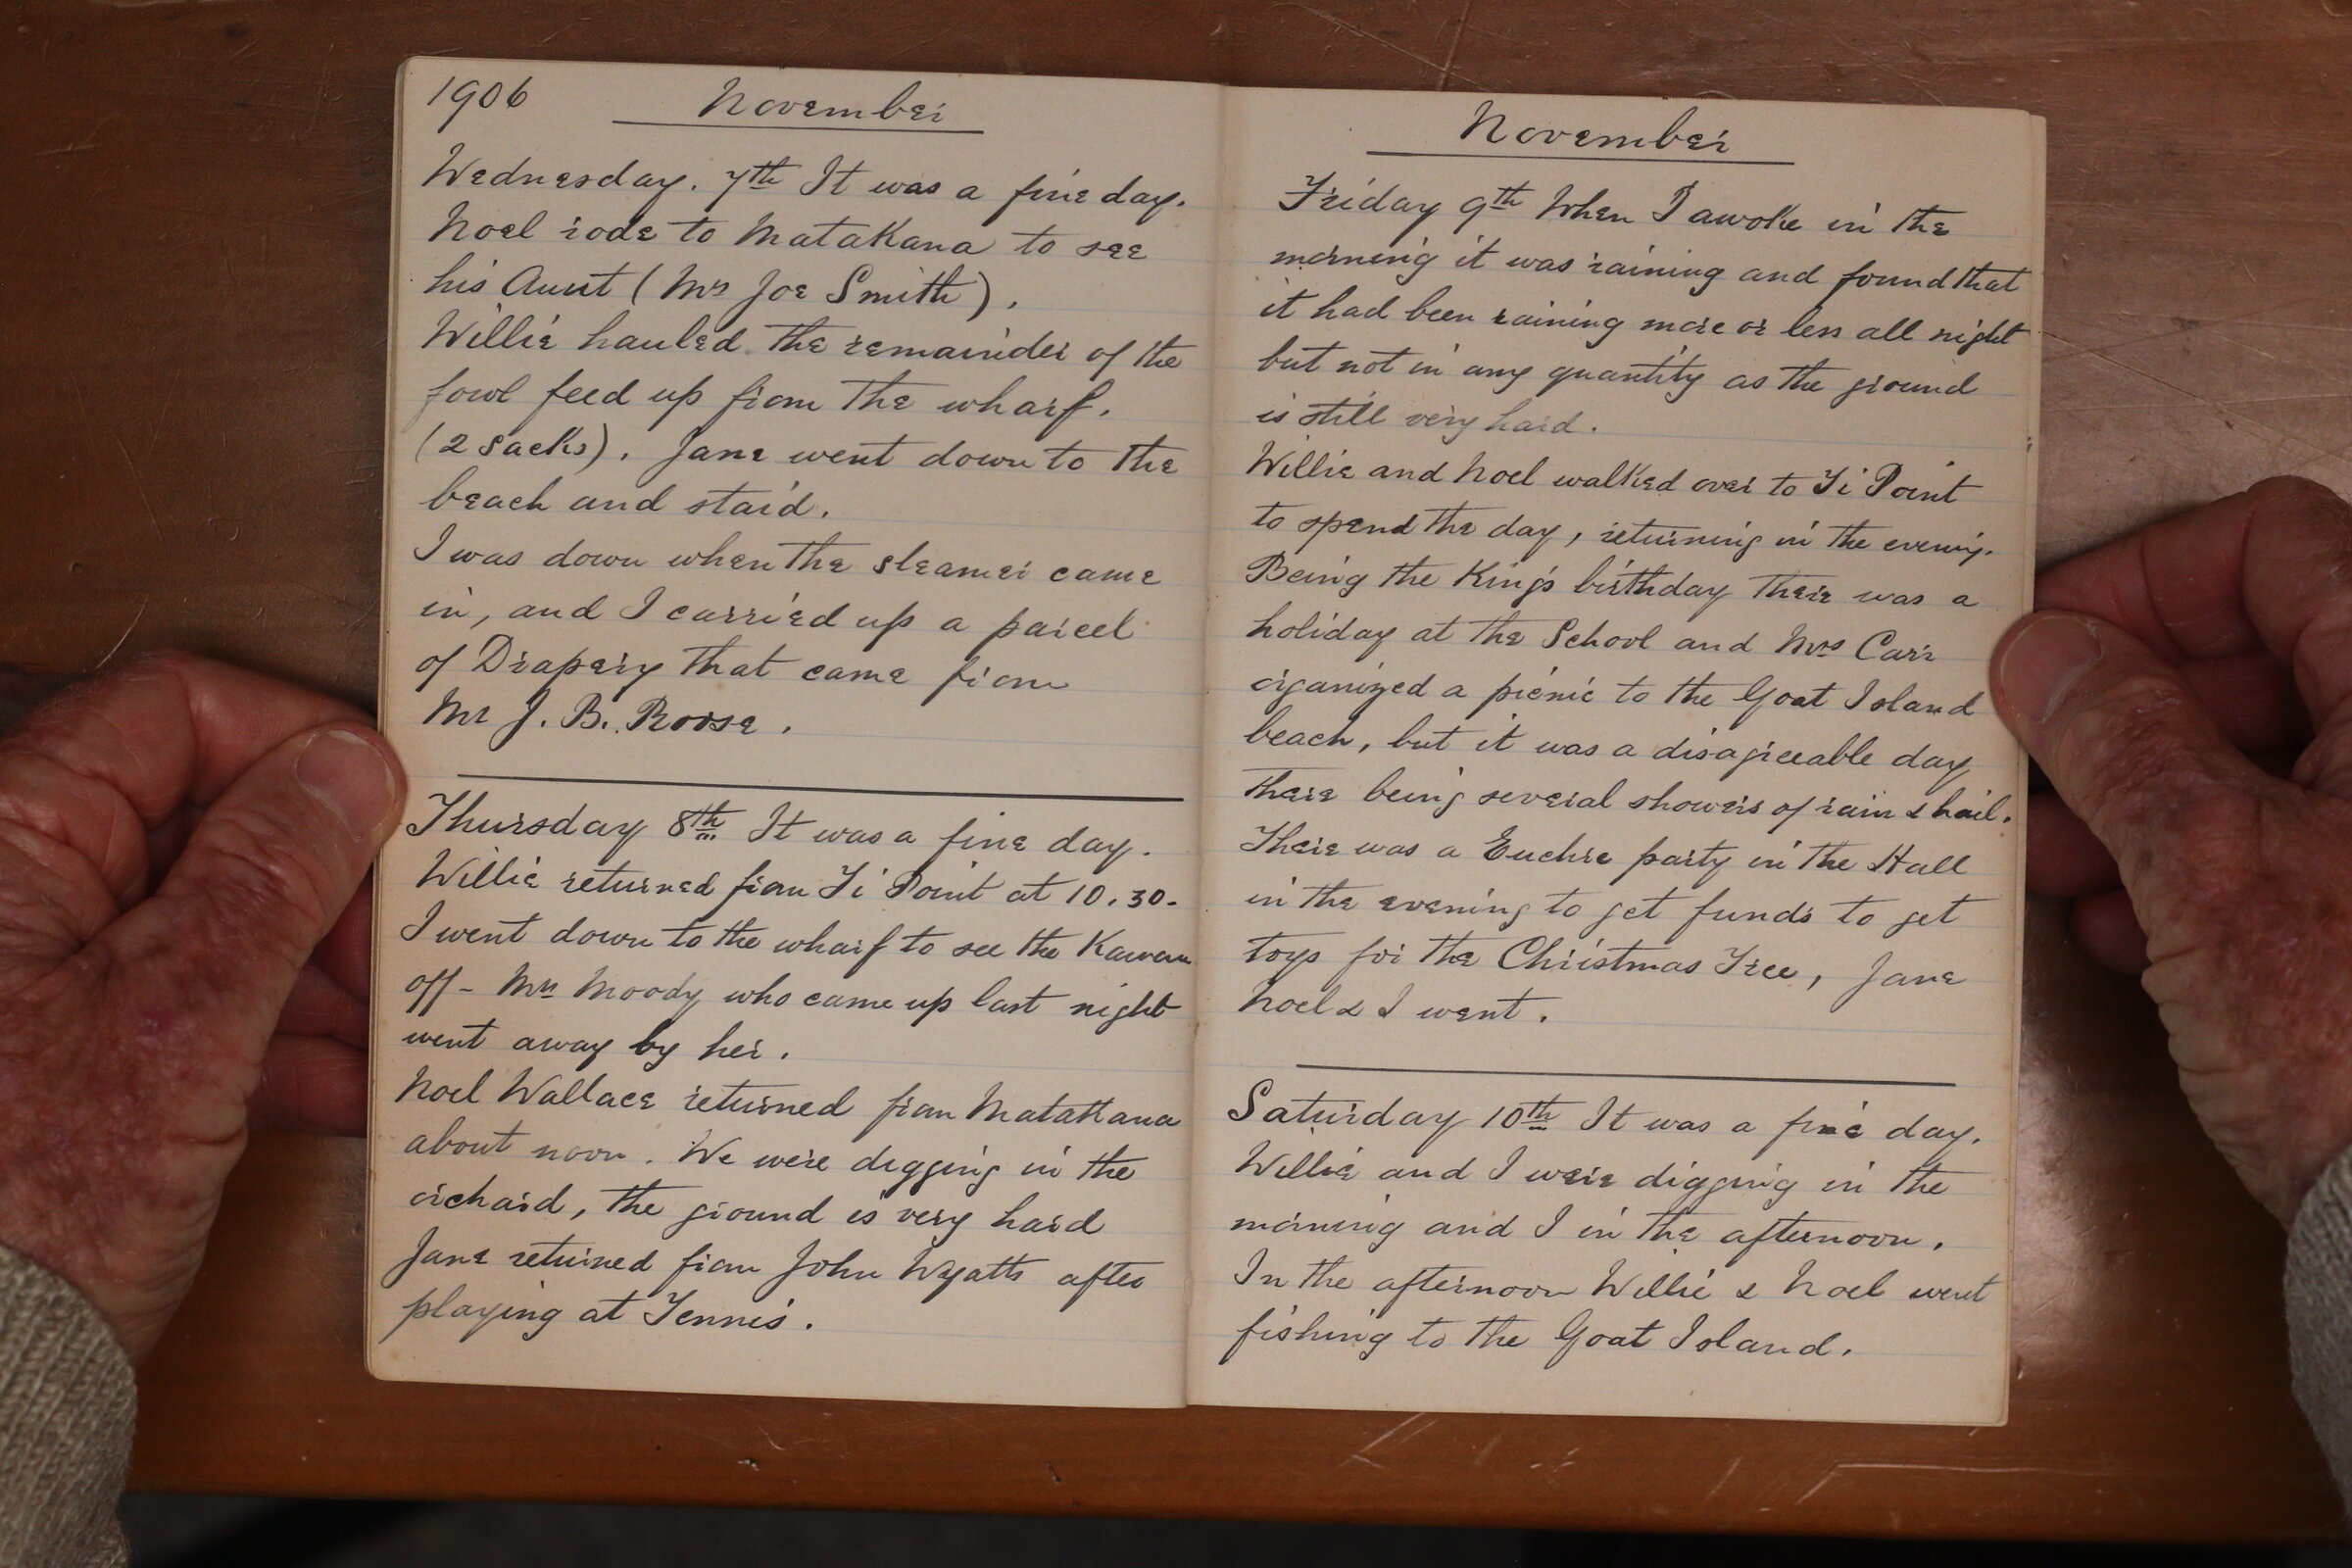 1906
November
Wednesday. 7th It was a fine day.
Noel rode to Matakana to see
his Aunt (Mrs Joe Smith).
Willie hauled the remainder of the
fowl feed up from the wharf.
(2 sacks). Jane went down to the
beach and staid.
I was down when the steamer came
in, and I carried up a parcel
of Drapery that came from
Mr J. B. Roose.
Thursday 8th It was a fine day.
Willie returned from Ti Point at 10.30.
I went down to the wharf to see the Kawau
off - Mrs Moody who came up last night
went away by her.
Noel Wallace returned from Matakana
about noon. We were digging in the
orchard, the ground is very hard
Jane returned from John Wyatts after
playing at Tennis.
November
Friday 9th When I awoke in the
morning it was raining and found that
it had been raining more or less all night
but not in any quantity as the ground
is still very hard.
Willie and Noel walked over to Ti Point
to spend the day, returning in the evening.
Being the King's birthday there was a
holiday at the School and Mrs Carr
organized a picnic to the Goat Island
beach, but it was a disagreeable day
there being several showers of rain & hail.
There was a Euchre party in the Hall
in the evening to get funds to get
toys for the Christmas Tree, Jane
Noel & I went.
Saturday 10th It was a fine day.
Willie and I were digging in the
morning and I in the afternoon.
In the afternoon Willie & Noel went
fishing to the Goat Island.